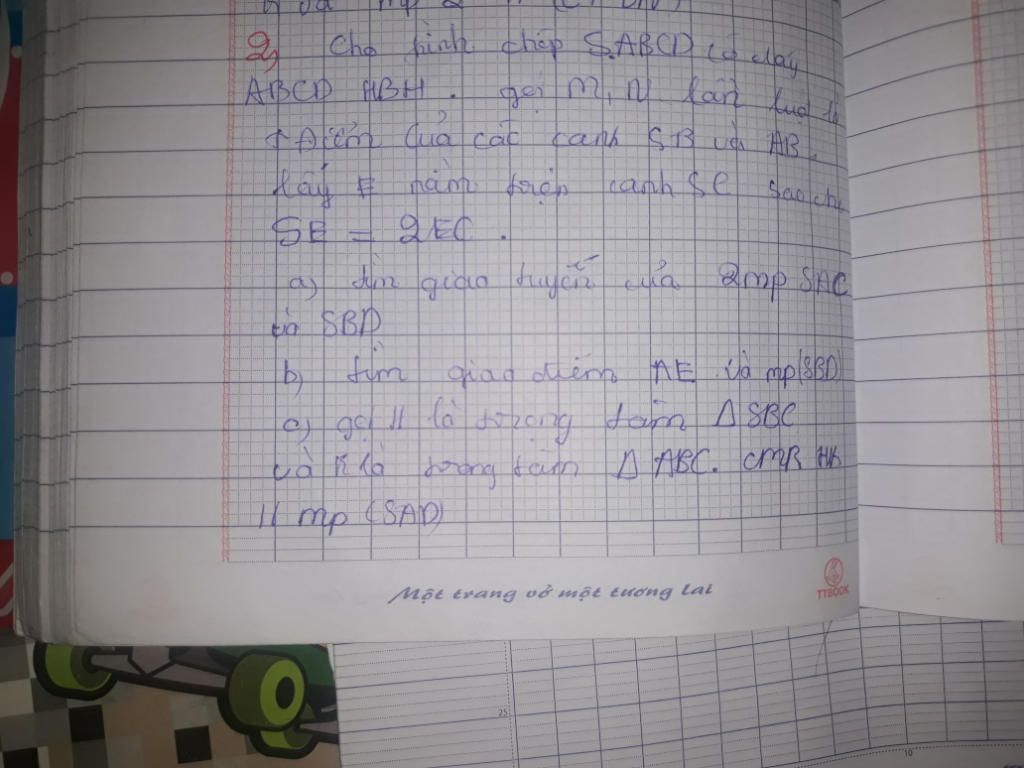 và mp
2, Cho hình chóp S.ABCD có đáy
ABCD HBH. gọi M, N lần lượt là
t điểm của các cạnh SB và AB.
lấy E nằm trên cạnh SC sao cho
SE = 2EC.
a) tìm giao tuyến của 2mp SAC
và SBD
b) tìm giao điểm ME và mp(SBD)
c) gọi H là trọng tâm Δ SBC
và K là trọng tâm Δ ABC. CMR HK
// mp (SAD)
Một trang vở một tương lai
TTBOOK
25
10